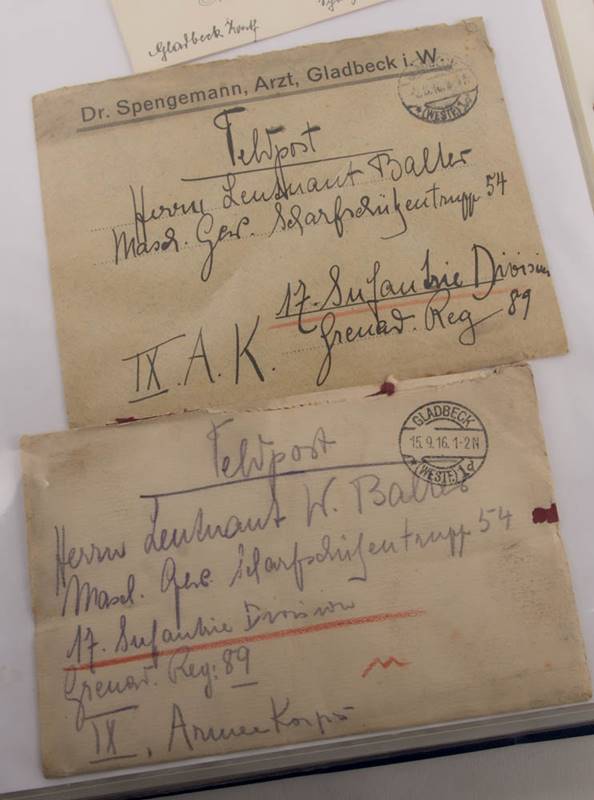 Gladbeck
Dr. Spengemann, Arzt, Gladbeck i. W.
(WESTF) 1d
Feldpost
Herrn Leutnant Balter
Masch. Gew. Scharfschützentrupp 54
17. Infanterie Division
Grenad. Reg 89
IX. A. K.
GLADBECK
15.9.16.1-2N
*(WESTF) 1d
Feldpost
Herrn Leutnant W. Balter
Masch. Gew. Scharfschützentrupp 54
17. Infanterie Division
Grenad. Reg: 89
IX. Armee Korps